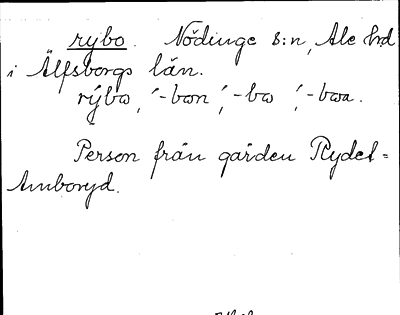 rybo. Nödinge s:n, Ale hrd
i Älfsborgs län.
rýbω, ´-bωn, ´-bω, ´-bωa.
Person från gården Ryd el=